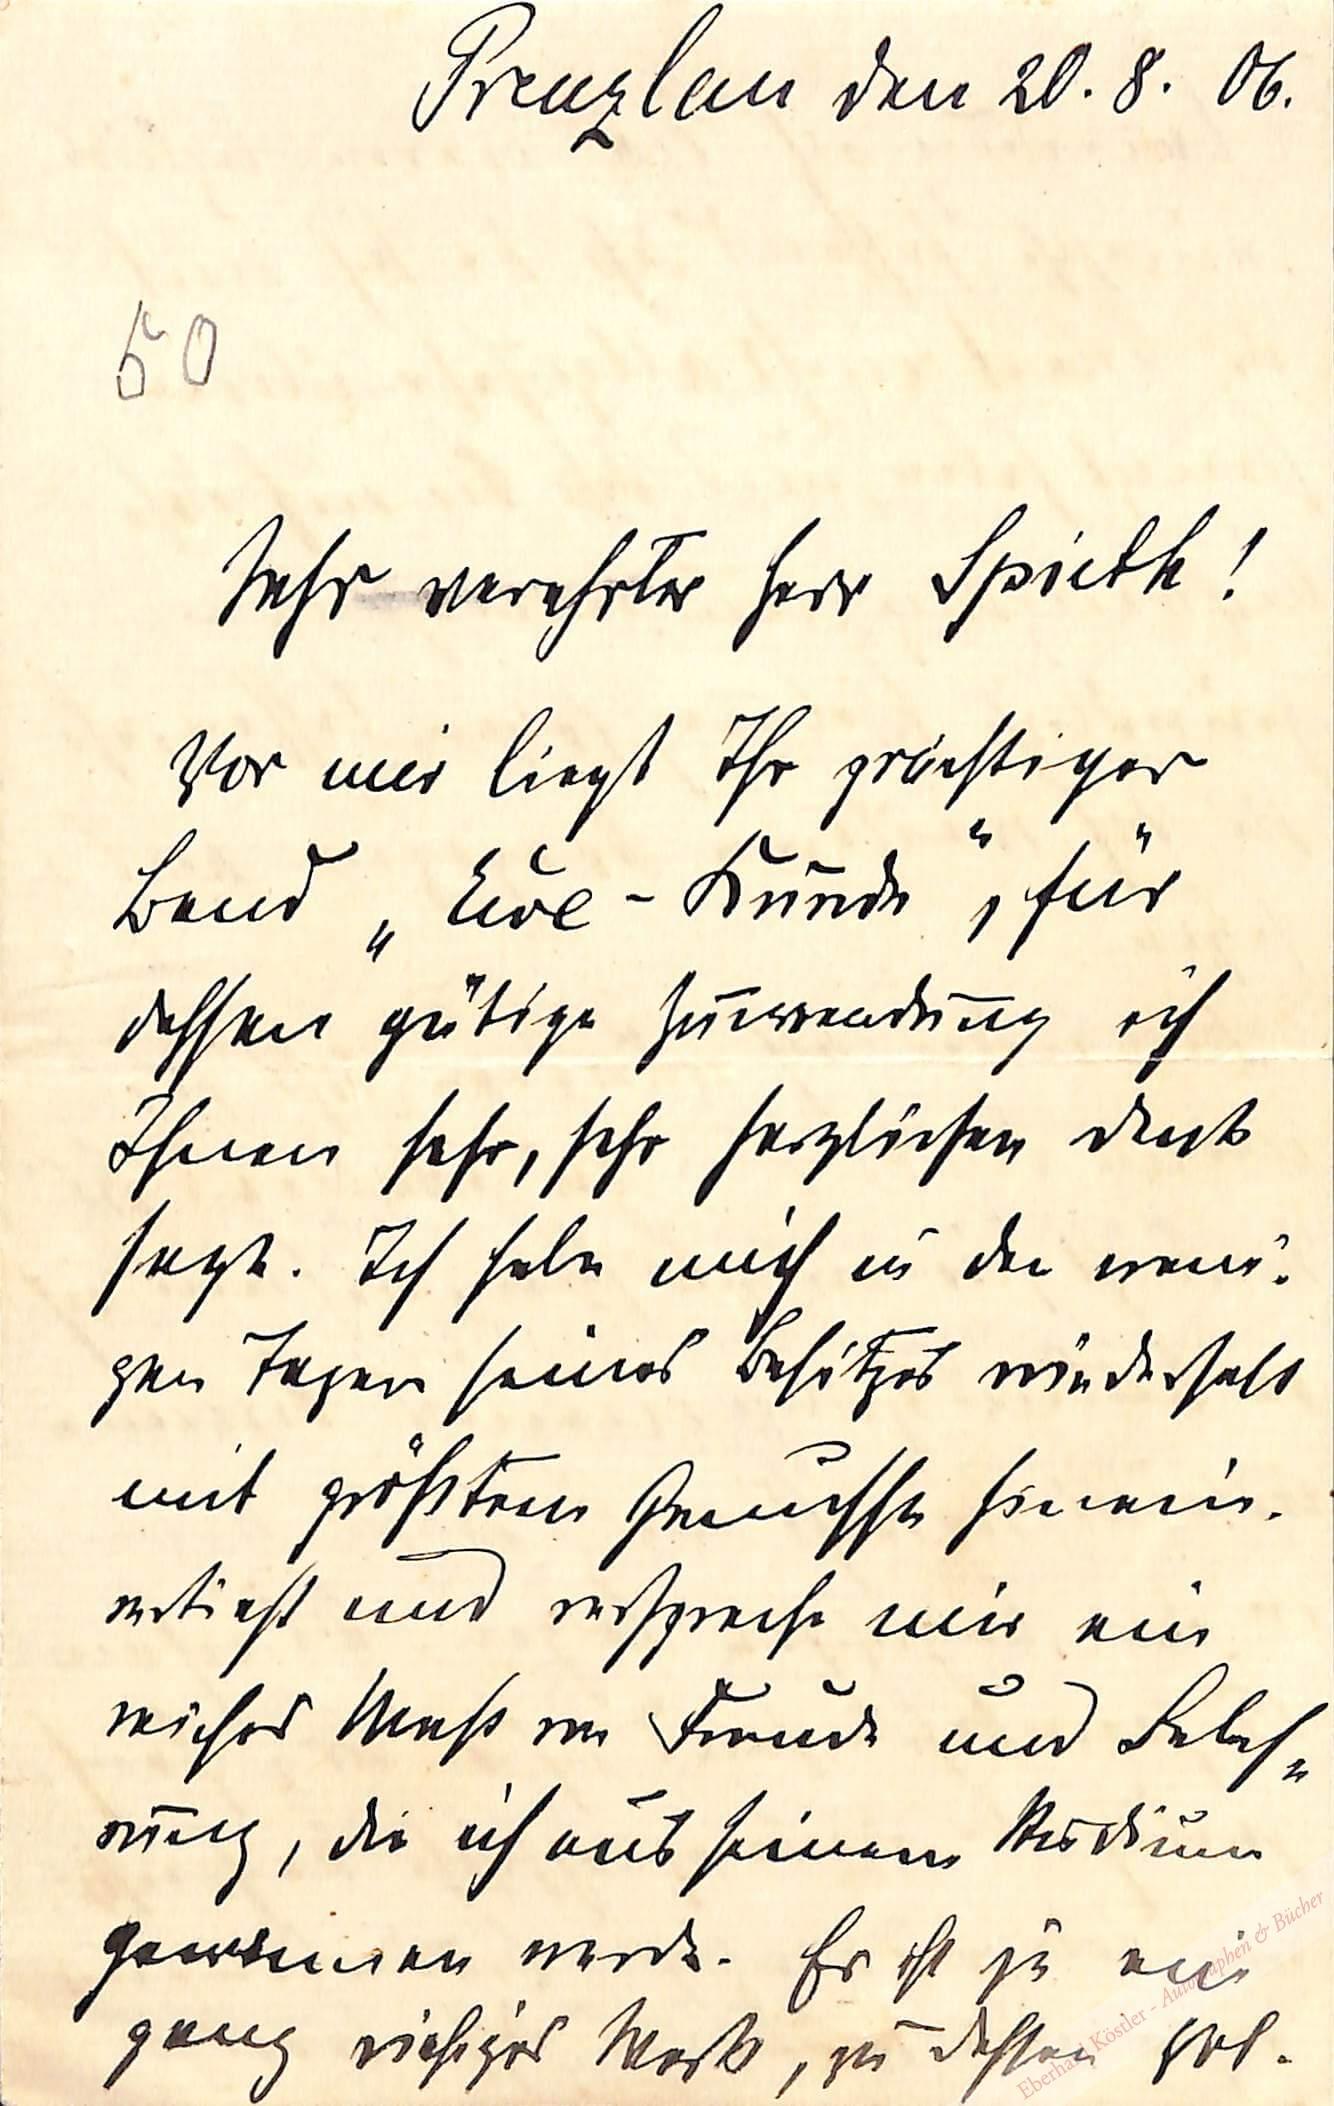 Prenzlau den 20. 8. 06.
50
Sehr verehrter Herr Spieth!
Vor mir liegt Ihr prächtiger
Band „Eve-Kunde“, für
dessen gütige Zuwendung ich
Ihnen sehr, sehr herzlichen Dank
sage. Ich habe mich in den weni-
gen Tagen seines Besitzes wiederholt
mit größtem Genusse hinein-
vertieft und verspreche mir ein
reiches Maß von Freude und Beleh-
rung, die ich aus seinem Studium
gewinnen werde. Es ist ja ein
ganz riesiges Werk, zu dessen Vol-
Eberhard Köstler - Autographen & Bücher